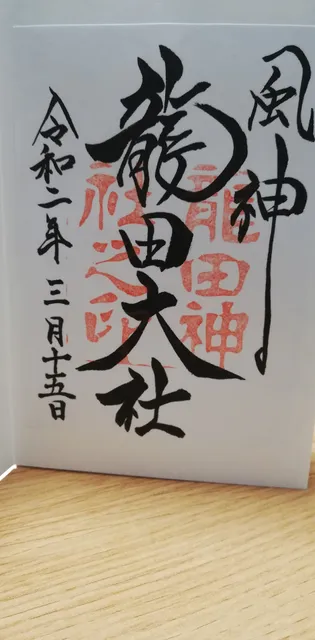 風神
龍田大社
龍田神
社之印
令和二年三月十五日